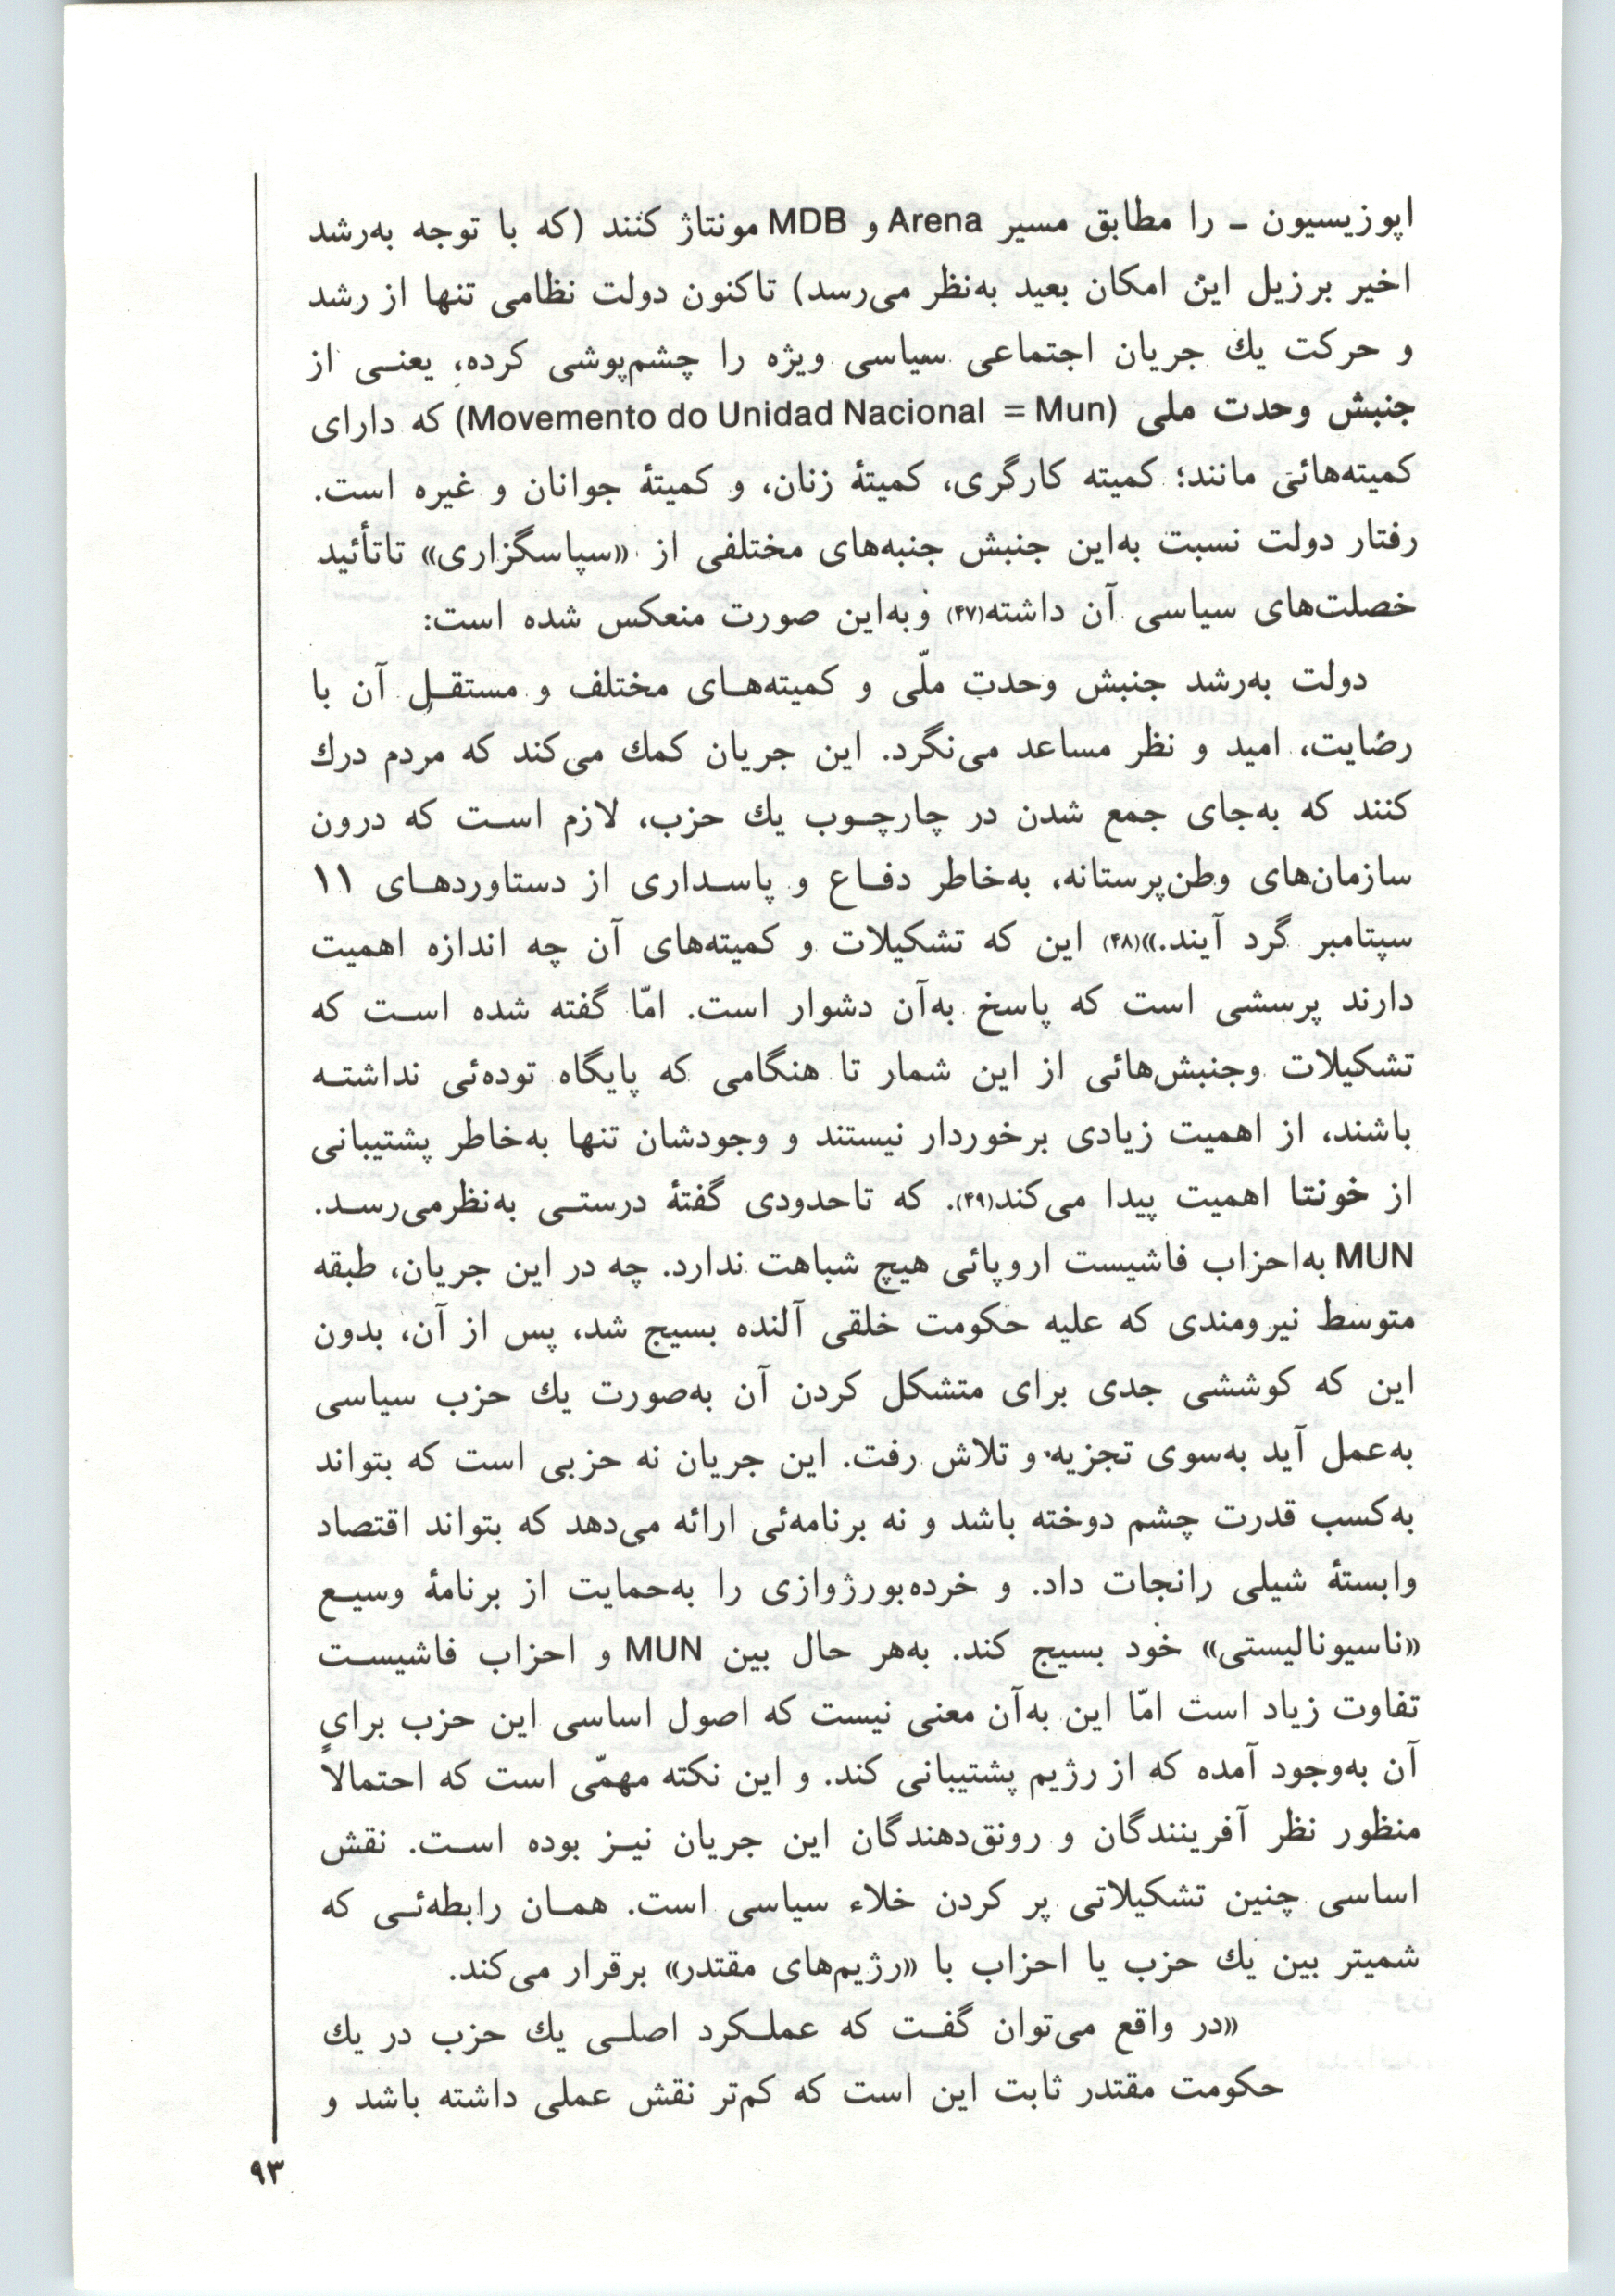 اپوزیسیون ـ را مطابق مسیر Arena و MDB مونتاژ کنند (که با توجه به‌رشد
اخیر برزیل این امکان بعید به‌نظر می‌رسد) تاکنون دولت نظامی تنها از رشد
و حرکت یك جریان اجتماعی سیاسی ویژه را چشم‌پوشی کرده، یعنـی از
جنبش وحدت ملی (Movemento do Unidad Nacional = Mun) که دارای
کمیته‌هائی مانند؛ کمیته کارگری، کمیتهٔ زنان، و کمیتهٔ جوانان و غیره است.
رفتار دولت نسبت به‌این جنبش جنبه‌های مختلفی از «سپاسگزاری» تاتأئید
خصلت‌های سیاسی آن داشته(۴۷) و به‌این صورت منعکس شده است:
دولت به‌رشد جنبش وحدت ملّی و کمیته‌هـای مختلف و مستقـل آن با
رضایت، امید و نظر مساعد می‌نگرد. این جریان کمك می‌کند که مردم درك
کنند که به‌جای جمع شدن در چارچـوب یك حزب، لازم اسـت که درون
سازمان‌های وطن‌پرستانه، به‌خاطر دفـاع و پاسـداری از دستاوردهـای ۱۱
سپتامبر گرد آیند.»(۴۸) این که تشکیلات و کمیته‌های آن چه اندازه اهمیت
دارند پرسشی است که پاسخ به‌آن دشوار است. امّا گفته شده اسـت که
تشکیلات وجنبش‌هائی از این شمار تا هنگامی که پایگاه توده‌ئی نداشتـه
باشند، از اهمیت زیادی برخوردار نیستند و وجودشان تنها به‌خاطر پشتیبانی
از خونتا اهمیت پیدا می‌کند(۴۹). که تاحدودی گفتهٔ درستـی به‌نظرمی‌رسـد.
MUN به‌احزاب فاشیست اروپائی هیچ شباهت ندارد. چه در این جریان، طبقه
متوسط نیرومندی که علیه حکومت خلقی آلنده بسیج شد، پس از آن، بدون
این که کوششی جدی برای متشکل کردن آن به‌صورت یك حزب سیاسی
به‌عمل آید به‌سوی تجزیه و تلاش رفت. این جریان نه حزبی است که بتواند
به‌کسب قدرت چشم دوخته باشد و نه برنامه‌ئی ارائه می‌دهد که بتواند اقتصاد
وابستهٔ شیلی رانجات داد. و خرده‌بورژوازی را به‌حمایت از برنامهٔ وسیـع
«ناسیونالیستی» خود بسیج کند. به‌هر حال بین MUN و احزاب فاشیسـت
تفاوت زیاد است امّا این به‌آن معنی نیست که اصول اساسی این حزب برای
آن به‌وجود آمده که از رژیم پشتیبانی کند. و این نکته مهمّی است که احتمالاً
منظور نظر آفرینندگان و رونق‌دهندگان این جریان نیـز بوده اسـت. نقش
اساسی چنین تشکیلاتی پر کردن خلاء سیاسی است. همـان رابطه‌ئـی که
شمیتر بین یك حزب یا احزاب با «رژیم‌های مقتدر» برقرار می‌کند.
«در واقع می‌توان گفـت که عملـکرد اصلـی یك حزب در یك
حکومت مقتدر ثابت این است که کم‌تر نقش عملی داشته باشد و
۹۳